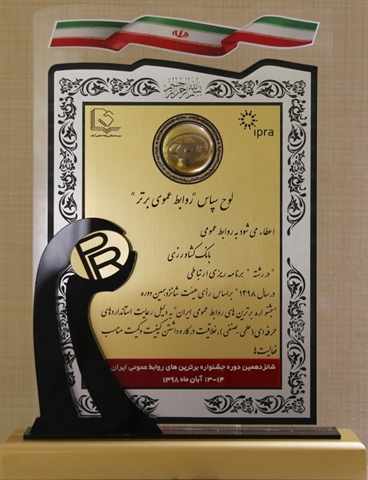 بسم الله الرحمن الرحیم
ipra
لوح سپاس "روابط عمومی برتر"
اعطاء می شود به روابط عمومی
بانک کشاورزی
"در رشته" برنامه ریزی ارتباطی
در سال ۱۳۹۸" براساس رأی هیئت شانزدهمین دوره
جشنواره برترین های روابط عمومی ایران" به دلیل رعایت استانداردهای
حرفه ای (علمی، صنفی)، خلاقیت در کار و داشتن کیفیت و کمیت مناسب
فعالیت‌ها
PR
شانزدهمین دوره جشنواره برترین های روابط عمومی ایران
۱۳-۱۴ آبان ماه ۱۳۹۸